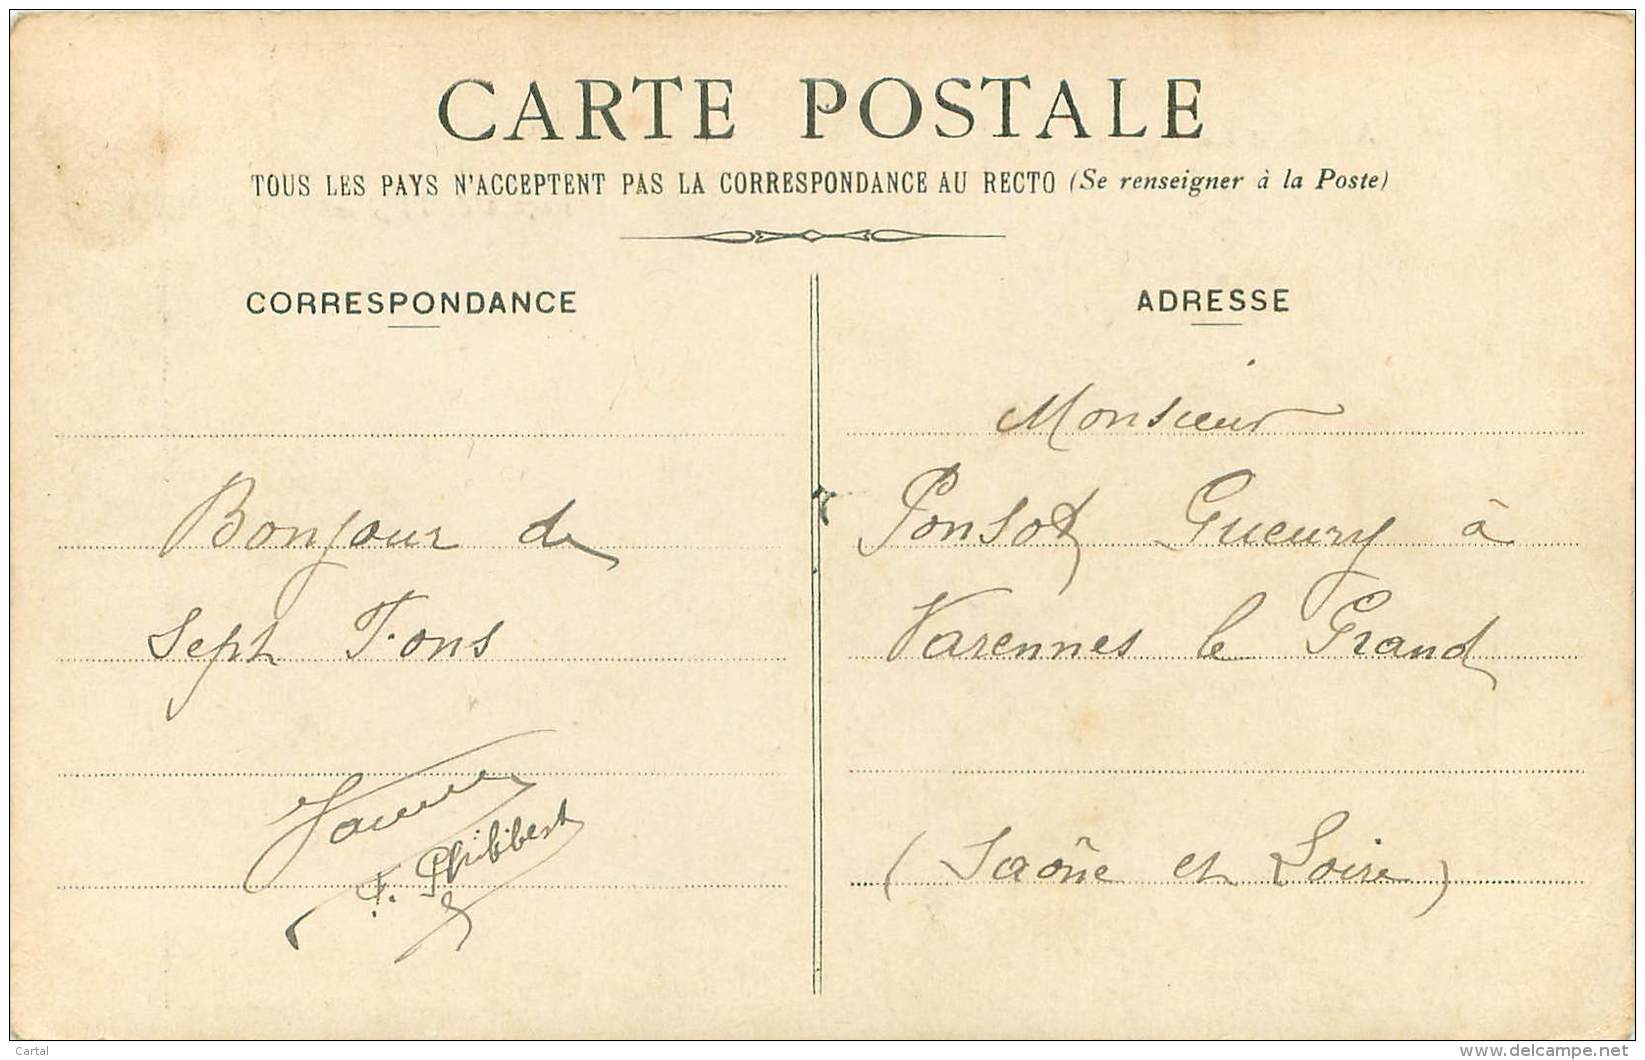 CARTE POSTALE
TOUS LES PAYS N'ACCEPTENT PAS LA CORRESPONDANCE AU RECTO (Se renseigner à la Poste)
CORRESPONDANCE
Bonjour de
Sept Fons
Philibert
ADRESSE
Monsieur
Ponsot Gueury à
Varennes le Grand
(Saône et Loire)
Cartal
www.delcampe.net